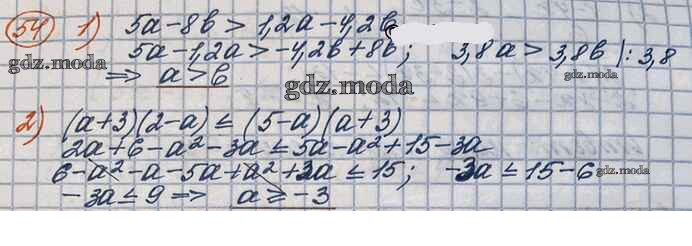 54 1) 5a-8b > 1,2a-4,2b
5a-1,2a > -4,2b+8b; 3,8a > 3,8b |: 3,8
gdz.moda
⇒ a>b
gdz.moda
gdz.moda
2) (a+3)(2-a) ≤ (5-a)(a+3)
2a+6-a²-3a ≤ 5a-a²+15-3a
6-a²-a-5a+a²+3a ≤ 15; -3a ≤ 15-6
gdz.moda
-3a ≤ 9 ⇒ a ≥ -3